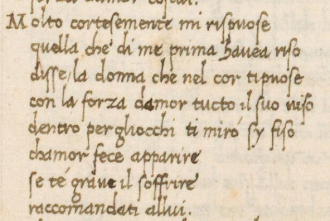 Molto cortesemente mi rispuose
quella che di me prima havea riso
disse la donna che nel cor ti puose
con la forza damor tucto il suo viso
dentro per gliocchi ti mirò sy fiso
chamor fece apparire
se té grave il soffrire
raccomandati allui.